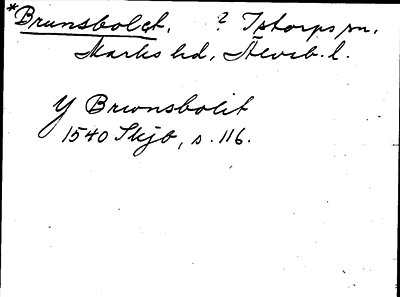 *Brunsbolet. ? Istorps sn.
Marks hd, Älvsb. l.
Y Brwnsbolit
1540 Skjb, s. 116.